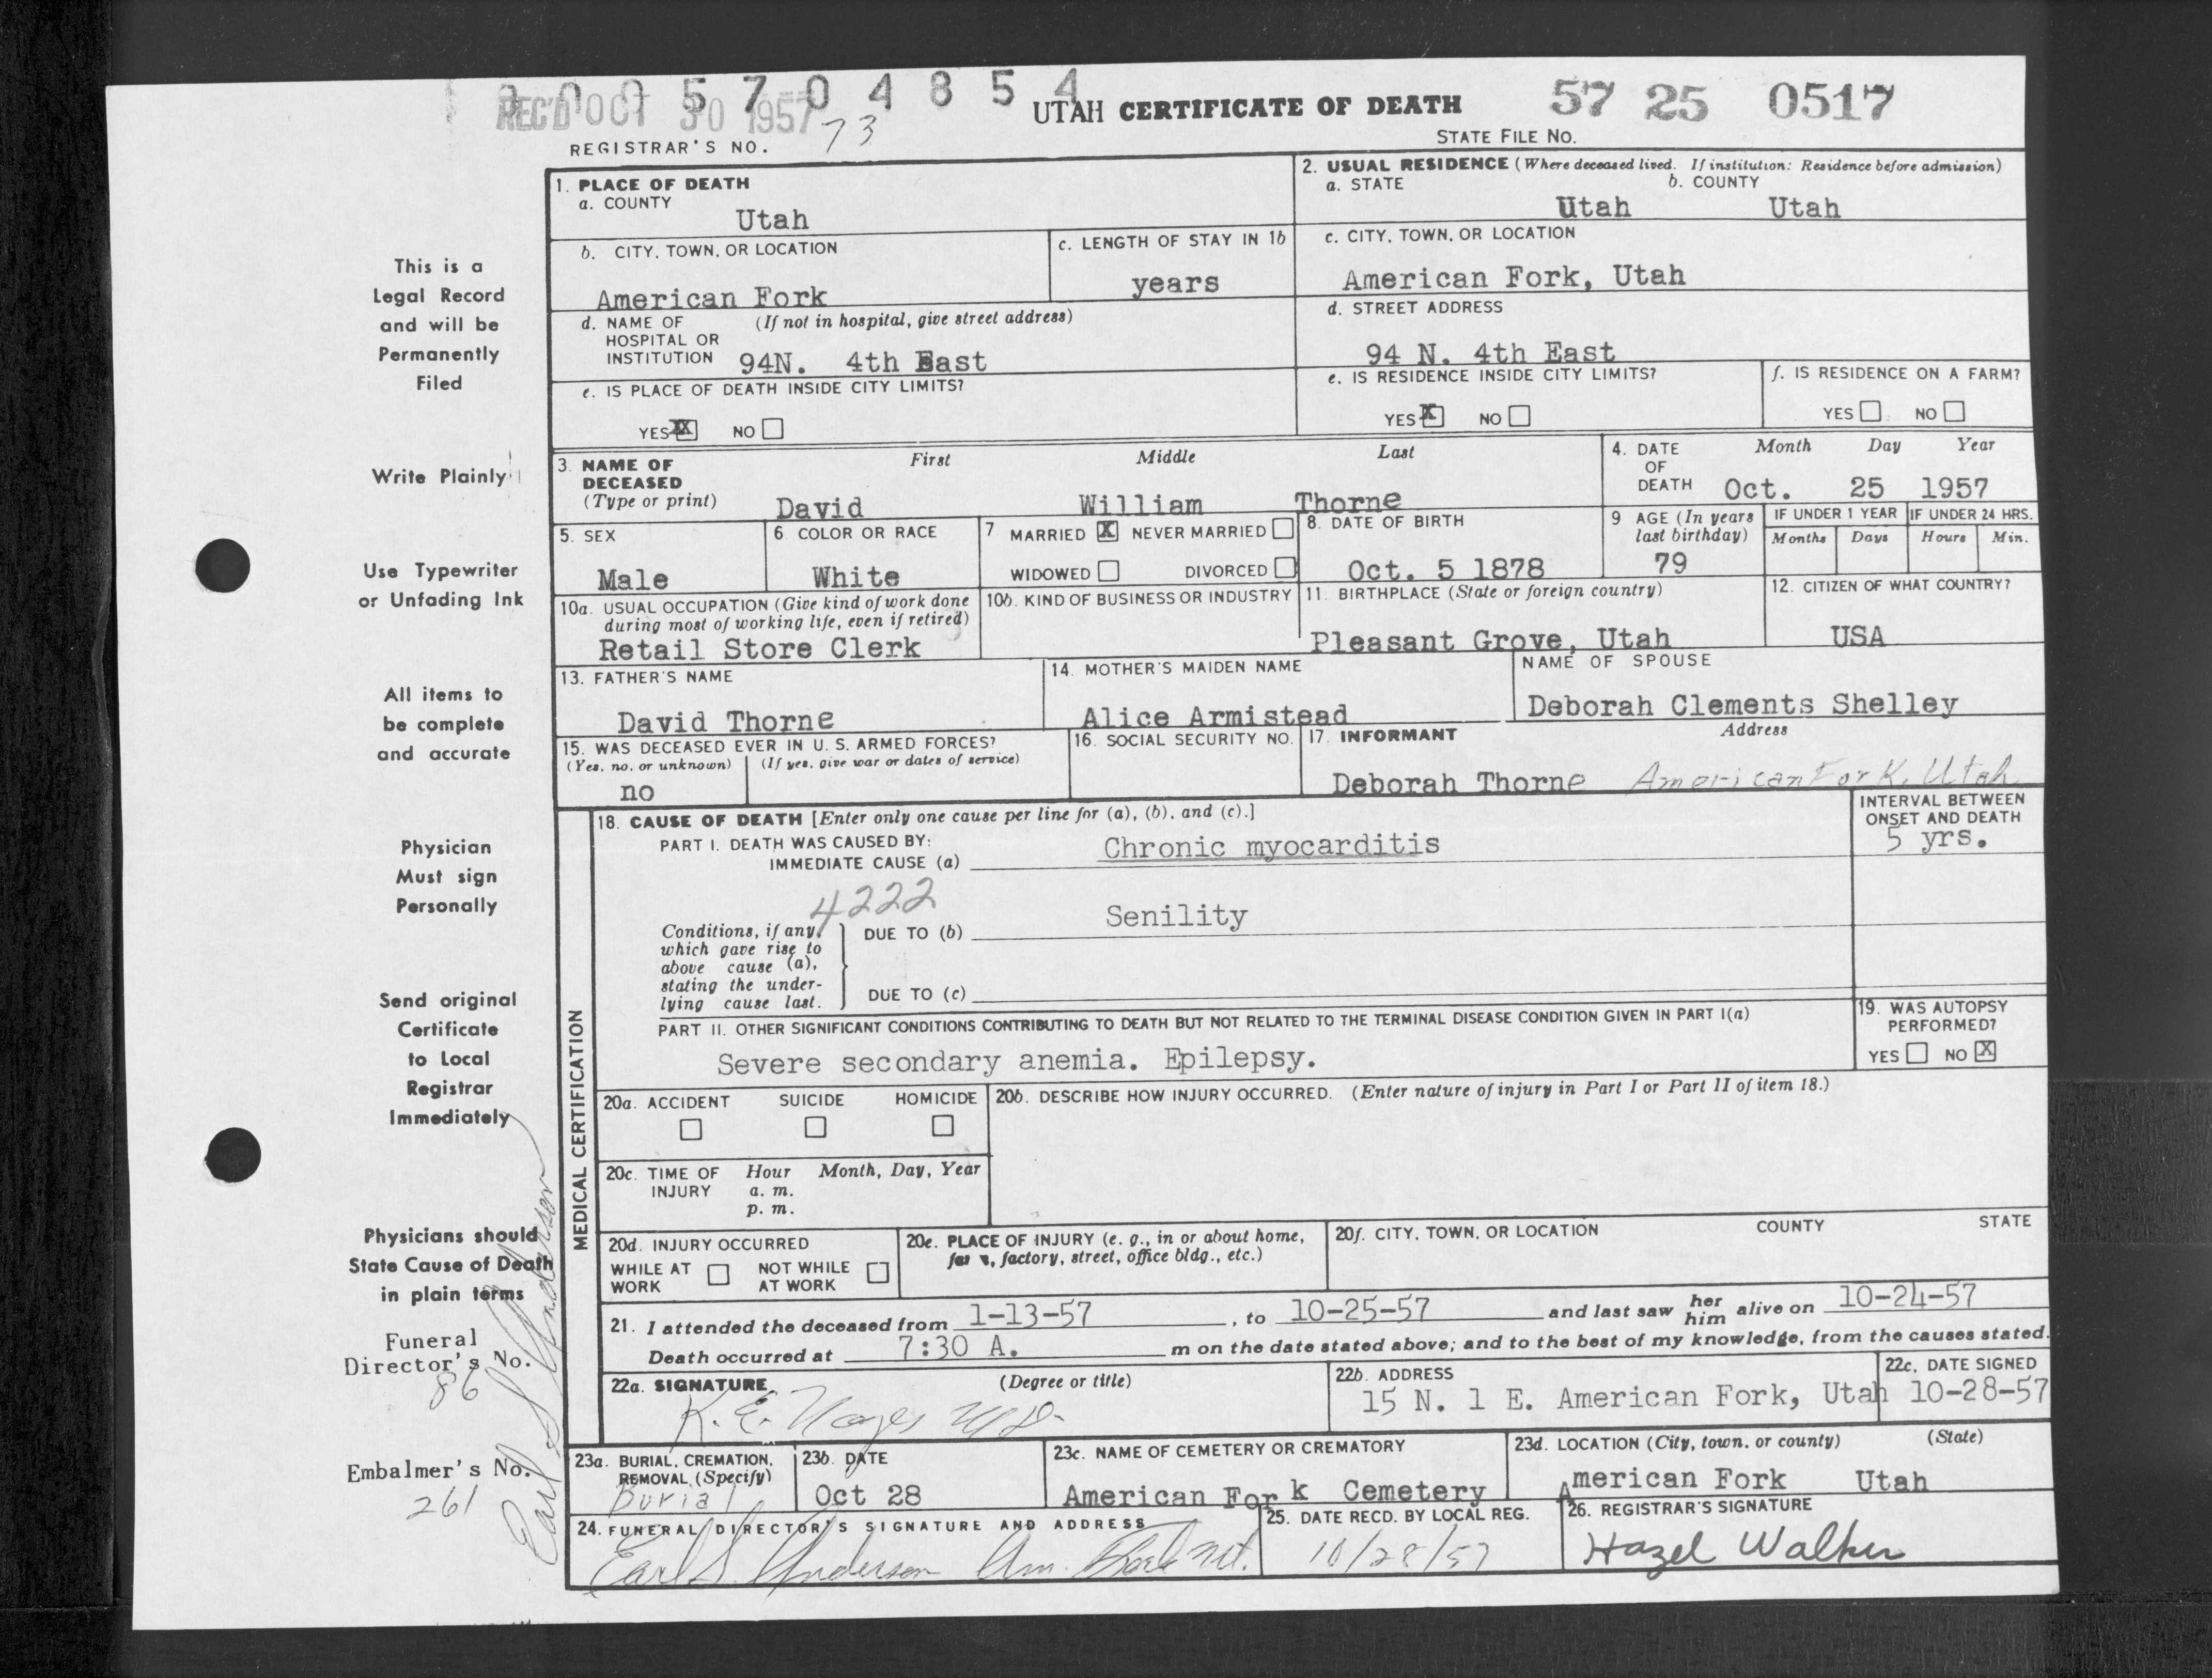 2 0 0 5 7 0 4 8 5 4
REC'D OCT 30 1957
UTAH CERTIFICATE OF DEATH
57 25 0517
STATE FILE NO.
REGISTRAR'S NO. 73
1. PLACE OF DEATH
a. COUNTY
Utah
2. USUAL RESIDENCE (Where deceased lived. If institution: Residence before admission)
a. STATE b. COUNTY
Utah Utah
b. CITY, TOWN, OR LOCATION
American Fork
c. LENGTH OF STAY IN 1b
years
c. CITY, TOWN, OR LOCATION
American Fork, Utah
d. NAME OF (If not in hospital, give street address)
HOSPITAL OR
INSTITUTION 94N. 4th East
d. STREET ADDRESS
94 N. 4th East
e. IS PLACE OF DEATH INSIDE CITY LIMITS?
YES XX NO
e. IS RESIDENCE INSIDE CITY LIMITS?
YES X NO
f. IS RESIDENCE ON A FARM?
YES NO
3. NAME OF First Middle Last
DECEASED
(Type or print) David William Thorne
4. DATE Month Day Year
OF
DEATH Oct. 25 1957
5. SEX
Male
6. COLOR OR RACE
White
7 MARRIED X NEVER MARRIED
WIDOWED DIVORCED
8. DATE OF BIRTH
Oct. 5 1878
9 AGE (In years
last birthday)
79
IF UNDER 1 YEAR IF UNDER 24 HRS.
Months Days Hours Min.
10a. USUAL OCCUPATION (Give kind of work done
during most of working life, even if retired)
Retail Store Clerk
10b. KIND OF BUSINESS OR INDUSTRY
11. BIRTHPLACE (State or foreign country)
Pleasant Grove, Utah
12. CITIZEN OF WHAT COUNTRY?
USA
13. FATHER'S NAME
David Thorne
14. MOTHER'S MAIDEN NAME
Alice Armistead
NAME OF SPOUSE
Deborah Clements Shelley
15. WAS DECEASED EVER IN U. S. ARMED FORCES?
(Yes, no, or unknown) (If yes, give war or dates of service)
no
16. SOCIAL SECURITY NO.
17. INFORMANT Address
Deborah Thorne American Fork, Utah
MEDICAL CERTIFICATION
18. CAUSE OF DEATH [Enter only one cause per line for (a), (b), and (c).]
INTERVAL BETWEEN
ONSET AND DEATH
PART I. DEATH WAS CAUSED BY:
IMMEDIATE CAUSE (a) Chronic myocarditis 5 yrs.
4222
Conditions, if any,
which gave rise to
above cause (a),
stating the under-
lying cause last.
DUE TO (b) Senility
DUE TO (c)
PART II. OTHER SIGNIFICANT CONDITIONS CONTRIBUTING TO DEATH BUT NOT RELATED TO THE TERMINAL DISEASE CONDITION GIVEN IN PART I(a)
Severe secondary anemia. Epilepsy.
19. WAS AUTOPSY
PERFORMED?
YES NO X
20a. ACCIDENT SUICIDE HOMICIDE
20b. DESCRIBE HOW INJURY OCCURRED. (Enter nature of injury in Part I or Part II of item 18.)
20c. TIME OF Hour Month, Day, Year
INJURY a. m.
p. m.
20d. INJURY OCCURRED
WHILE AT NOT WHILE
WORK AT WORK
20e. PLACE OF INJURY (e. g., in or about home,
farm, factory, street, office bldg., etc.)
20f. CITY, TOWN, OR LOCATION COUNTY STATE
21. I attended the deceased from 1-13-57, to 10-25-57 and last saw her him alive on 10-24-57
Death occurred at 7:30 A. m on the date stated above; and to the best of my knowledge, from the causes stated.
22a. SIGNATURE (Degree or title)
K. E. Noyes MD
22b. ADDRESS
15 N. 1 E. American Fork, Utah
22c. DATE SIGNED
10-28-57
23a. BURIAL, CREMATION,
REMOVAL (Specify)
Burial
23b. DATE
Oct 28
23c. NAME OF CEMETERY OR CREMATORY
American Fork Cemetery
23d. LOCATION (City, town, or county) (State)
American Fork Utah
24. FUNERAL DIRECTOR'S SIGNATURE AND ADDRESS
Earl S. Anderson Am. Fork Ut.
25. DATE RECD. BY LOCAL REG.
10/28/57
26. REGISTRAR'S SIGNATURE
Hazel Walker
This is a
Legal Record
and will be
Permanently
Filed
Write Plainly
Use Typewriter
or Unfading Ink
All items to
be complete
and accurate
Physician
Must sign
Personally
Send original
Certificate
to Local
Registrar
Immediately
Physicians should
State Cause of Death
in plain terms
Funeral
Director's No.
86
Embalmer's No.
261
Earl S Anderson